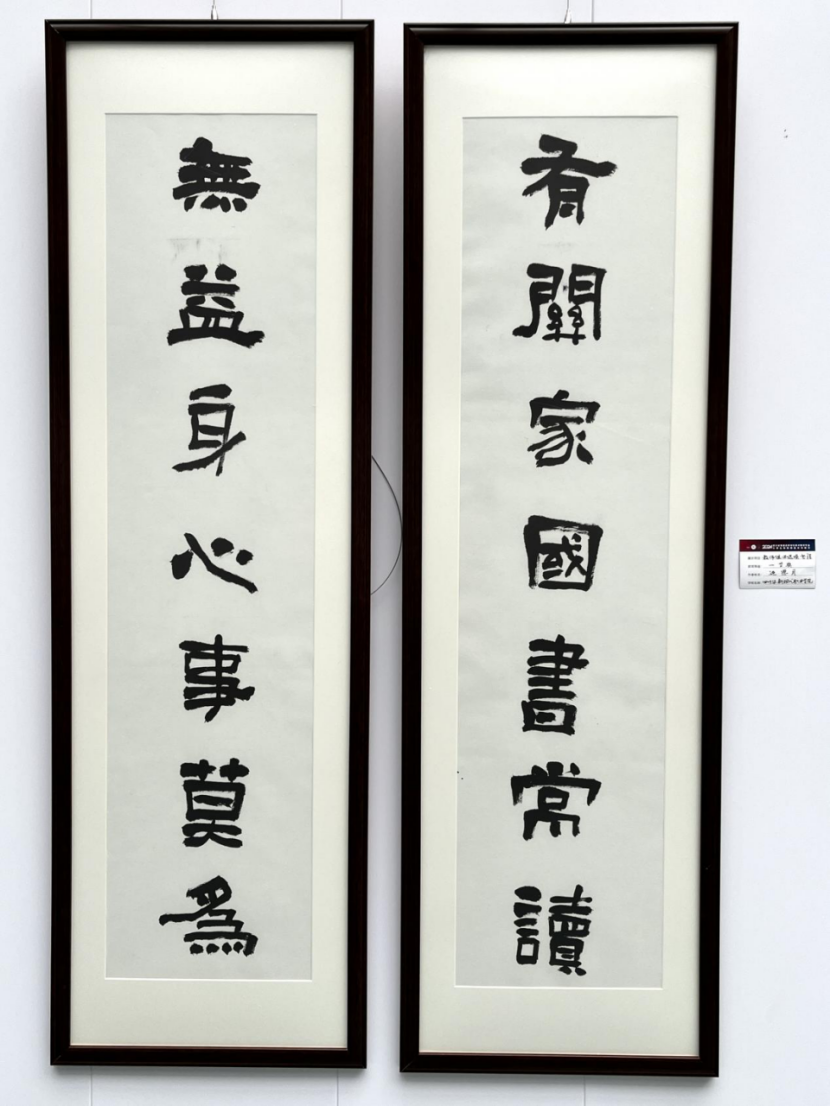 有關家國書常讀
無益身心事莫為
2024